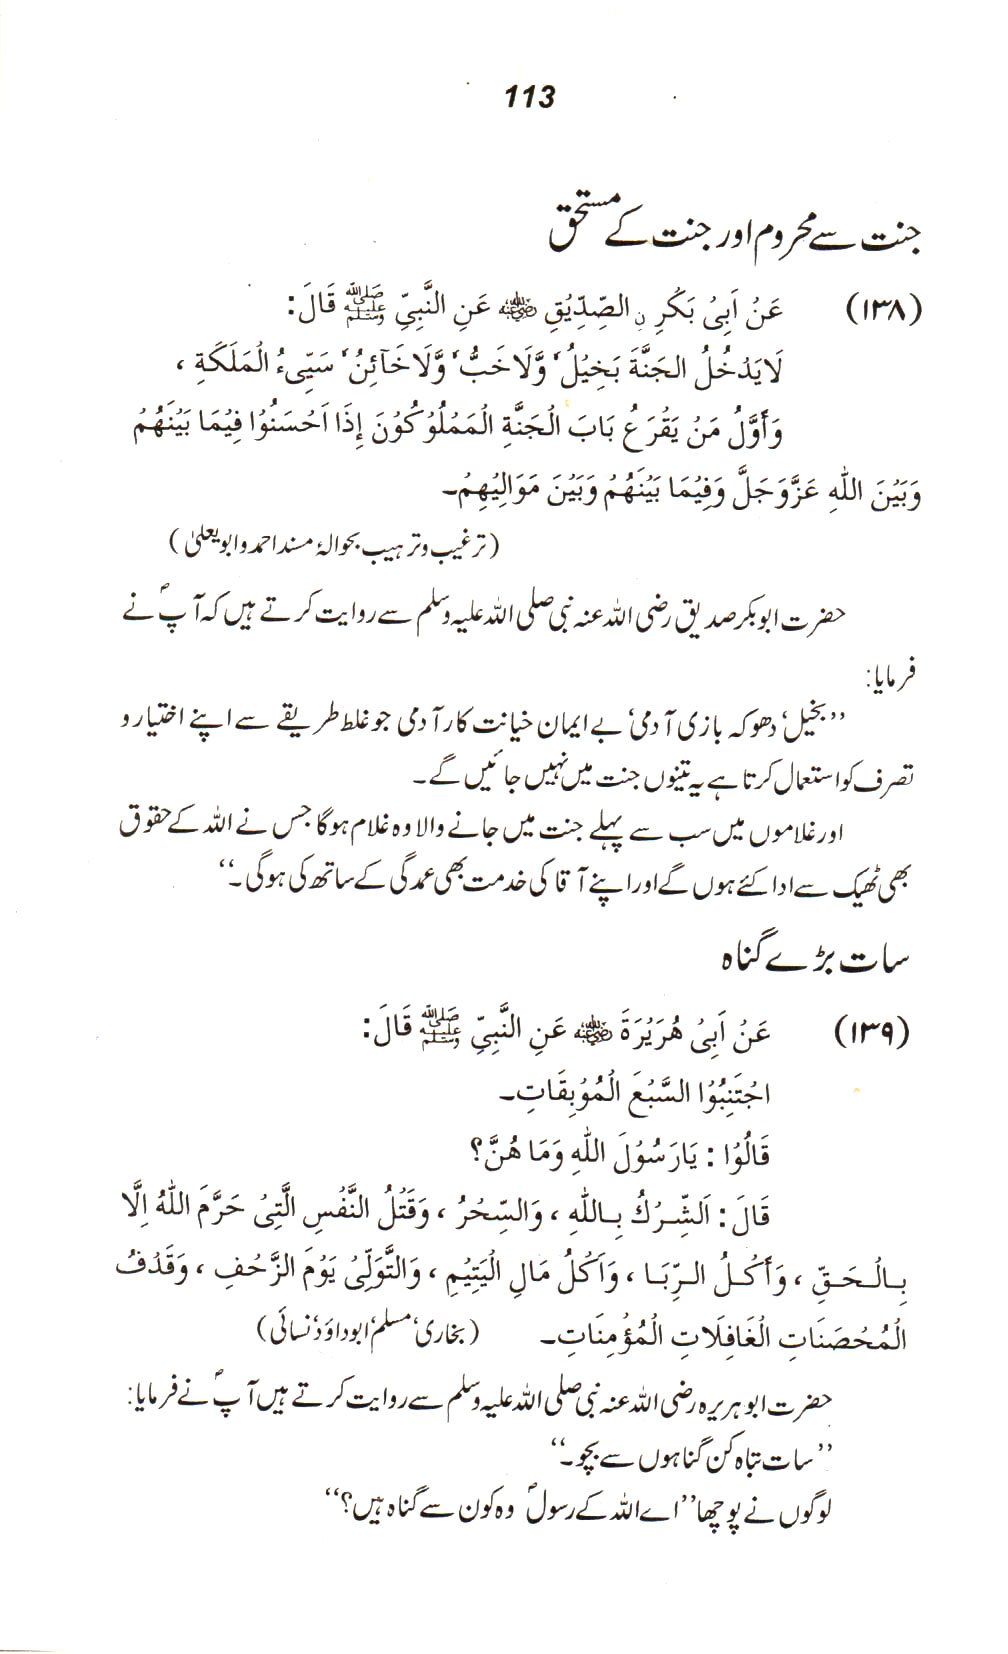 113
جنت سے محروم اور جنت کے مستحق
(۱۳۸) عَنُ اَبِیُ بَکُرِ نِ الصِّدِّیُقِ رضی اللہ عنہ عَنِ النَّبِیِّ ﷺ قَالَ:
لَا یَدُخُلُ الجَنَّةَ بَخِیُلُ ٗ وَّلَا خَبُّ ٗ وَّلَا خَآئِنُ ٗ سَیِّیءُ الُمَلَکَةِ ،
وَأَوَّلُ مَنُ یَقُرَعُ بَابَ الُجَنَّةِ الُمَمُلُوُکُوُنَ إِذَا اَحُسَنُوُا فِیُمَا بَیُنَهُمُ
وَبَیُنَ اللهِ عَزَّوَجَلَّ وَفِیُمَا بَیُنَهُمُ وَبَیُنَ مَوَالِیُهِمُ۔
(ترغیب وترہیب بحوالۂ مسند احمد وابویعلیٰ)
حضرت ابوبکر صدیق رضی اللہ عنہ نبی صلی اللہ علیہ وسلم سے روایت کرتے ہیں کہ آپؐ نے
فرمایا:
’’بخیل‘ دھوکہ بازی آدمی‘ بے ایمان خیانت کار آدمی جو غلط طریقے سے اپنے اختیار و
تصرف کو استعمال کرتا ہے یہ تینوں جنت میں نہیں جائیں گے۔
اور غلاموں میں سب سے پہلے جنت میں جانے والا وہ غلام ہوگا جس نے اللہ کے حقوق
بھی ٹھیک سے ادا کئے ہوں گے اور اپنے آقا کی خدمت بھی عمدگی کے ساتھ کی ہوگی۔‘‘
سات بڑے گناہ
(۱۳۹) عَنُ اَبِیُ هُرَیُرَةَ رضی اللہ عنہ عَنِ النَّبِیِّ ﷺ قَالَ:
اجُتَنِبُوُا السَّبُعَ الُمُوُبِقَاتِ۔
قَالُوُا : یَارَسُوُلَ اللهِ وَمَا هُنَّ؟
قَالَ : اَلشِّرُکُ بِاللهِ ، وَالسِّحُرُ ، وَقَتُلُ النَّفُسِ الَّتِیُ حَرَّمَ اللهُ اِلَّا
بِالُحَقِّ ، وَأَکُلُ الرِّبَا ، وَاَکُلُ مَالِ الُیَتِیُمِ ، وَالتَّوَلِّیُ یَوُمَ الزَّحُفِ ، وَقَذُفُ
الُمُحُصَنَاتِ الُغَافِلَاتِ الُمُؤُمِنَاتِ۔ (بخاری‘ مسلم‘ ابوداؤد‘ نسائی)
حضرت ابوہریرہ رضی اللہ عنہ نبی صلی اللہ علیہ وسلم سے روایت کرتے ہیں آپؐ نے فرمایا:
’’سات تباہ کن گناہوں سے بچو۔‘‘
لوگوں نے پوچھا ’’اے اللہ کے رسولؐ وہ کون سے گناہ ہیں؟‘‘